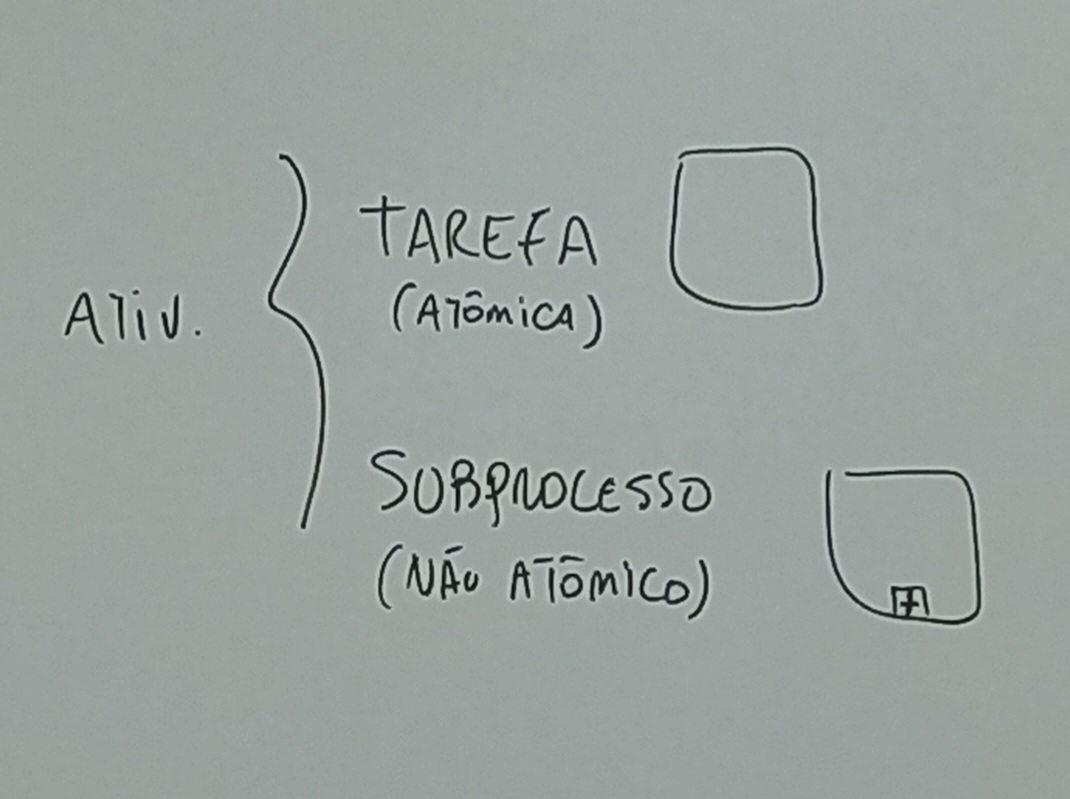 ATIV.
TAREFA
(ATÔMICA)
SUBPROCESSO
(NÃO ATÔMICO)
+